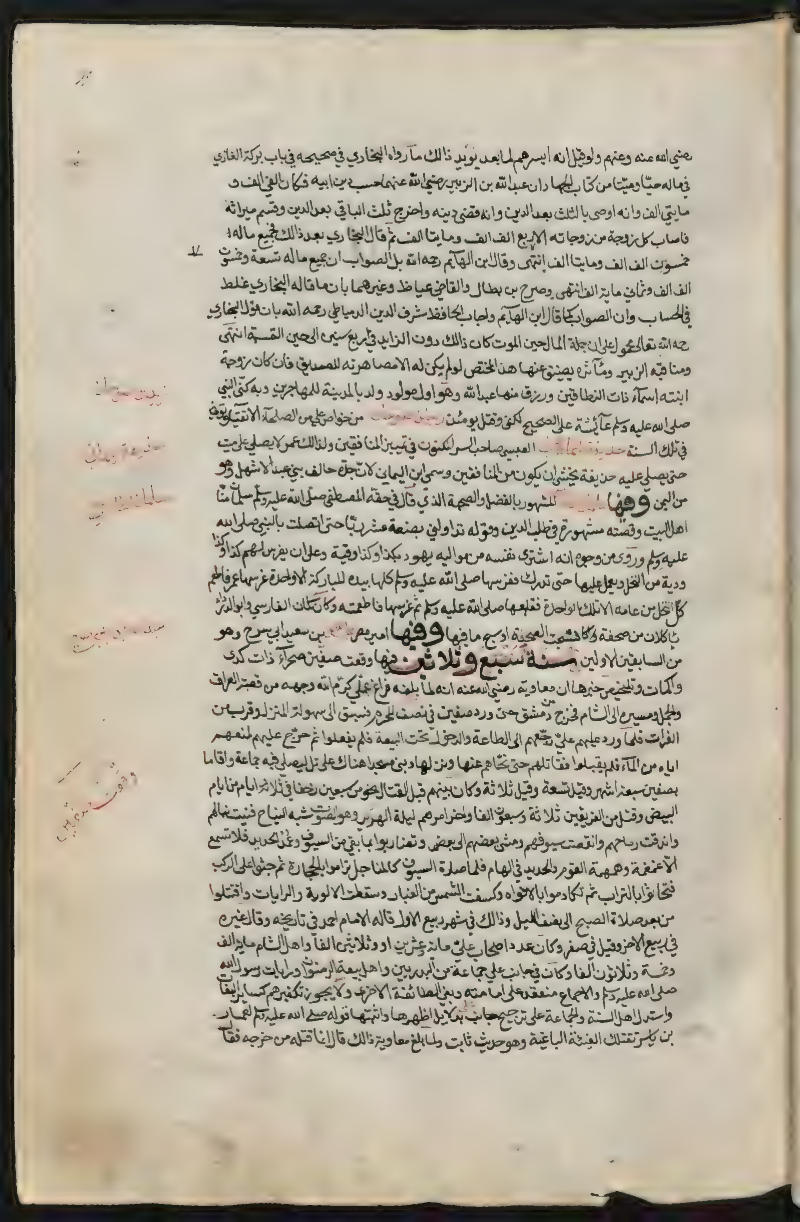 رضي الله عنه وعنهم ولو قيل انه ايسرهم لما بعد يؤيد ذالك ما رواه البخاري في صحيحه في باب بركة الغازي
في ماله حيا وميتا من كتاب الجهاد ان عبد الله بن الزبير رضي الله عنهما حسب دين ابيه فكان الفي الف و
مايتي الف وانه اوصى بالثلث بعد الدين وانه قضى دينه واخرج ثلث الباقي بعد الدين وقسم ميراثه
فاصاب كل زوجة من زوجاته الاربع الف الف ومايتا الف ثم قال البخاري بعد ذالك فجميع ماله
خمسون الف الف ومايتا الف انتهى وقال ابن الهايم رحمه الله بل الصواب ان جميع ماله تسعة وخمسون
الف الف وثماني ماية الف انتهى وصرح بن بطال والقاضي عياض وغيرهما بان ما قاله البخاري غلط
في الحساب وان الصواب كما قال ابن الهايم واجاب الحافظ شرف الدين الدمياطي رحمه الله بان قول البخاري
رحمه الله تعالى محمول على ان جملة المال حين الموت كان ذالك دون الزايد في اربع سنين الى حين القسمة انتهى
ومناقب الزبير ومآثره يضيق عنها هذا المختصر لو لم يكن له الا مصاهرته للصديق فان كان زوجة
ابنته اسماء ذات النطاقين ورزق منها عبد الله وهو اول مولود ولد بالمدينة للمهاجرين وبه كنى النبي
صلى الله عليه وسلم عائشة على الصحيح وقتل يومئذ من خواص علي من الصلحاء الاتقياء
في تلك السنة العبسي صاحب السر المكنون في تمييز المنافقين ولذالك عمر لا يصلي على ميت
حتى يصلي عليه حذيفة يخشى ان يكون من المنافقين وسمي ابن اليماني لان جده حالف بني عبد الاشهل وهو
من اليمن وفيها المشهور بالفضل والصحبة الذي قال في حقه المصطفى صلى الله عليه وسلم سلمان منا
اهل البيت وقصته مشهورة في طلب الدين وقوله تداولني بضعة عشر ربا حتى اتصلت بالنبي صلى الله
عليه وسلم وروي من وجوه انه اشترى نفسه من مواليه يهود بكذا وكذا وقية وعلى ان يغرس لهم كذا وكذا
ودية من النخل ويعمل عليها حتى تدرك فغرسها صلى الله عليه وسلم كلها بيده المباركة الا واحدة غرسها عمر فاطعم
كل النخل من عامه الا تلك الواحدة فقلعها صلى الله عليه وسلم ثم غرسها فاطعمته وكان سلمان الفارسي وابو الدردا
ياكلان من صحفة وكانا فسبحت الصحفة او سبح ما فيها وفيها امير مصر بن سعد ابي سرح وهو
من السابقين الاولين سنة سبع وثلاثين فيها وقعت صفين صحراء ذات كدى
واكمات وتلخيص خبرها ان معاوية رضي الله عنه انه لما بلغه فراغ علي كرم الله وجهه من قصة العراق
والجمل ومسيره الى الشام فخرج من دمشق حتى ورد صفين في نصف المحرم فسبق الى سهولة المنزل وقرب من
الفرات فلما ورد عليهم علي دعاهم الى الطاعة والدخول تحت البيعة فلم يفعلوا ثم خرج عليهم لمنعهم
اياه من الماء فلم يقبلوا فقاتلهم حتى نحاهم عنها ونزلها وبنى مسجدا هناك على تل ليصلي فيه جماعة واقاما
بصفين سبعة اشهر وقيل تسعة وقيل ثلاثة وكان بينهم قبل القتال نحو من سبعين زحفا في ثلاثة ايام من ايام
البيض وقتل من الفريقين ثلاثة وسبعون الفا واخر امرهم ليلة الهرير وهو الصوت شبه النباح فنيت نبالهم
واندقت رماحهم وانقصفت سيوفهم ومشى بعضهم الى بعض وتضاربوا بما بقي من السيوف وعمد الحديد فلا تسمع
الا غمغمة وهمهمة القوم والحديد في الهام فلما صارت السيوف كالمناجل تراموا بالحجارة ثم جثوا على الركب
فتحاثوا بالتراب ثم تكادموا بالافواه وكسفت الشمس من الغبار وسقطت الالوية والرايات واقتتلوا
من بعد صلاة الصبح الى نصف الليل وذالك في شهر ربيع الاول قاله الامام احمد في تاريخه وقال غيره
في ربيع الاخر وقيل في صفر وكان عدد اصحاب علي ماية وعشرين او وثلاثين الفا واهل الشام ماية الف
وخمسة وثلاثون الفا وكان في جانب علي جماعة من البدريين واهل بيعة الرضوان ورايات رسول الله
صلى الله عليه وسلم والاجماع منعقد على امامته وبغي الطائفة الاخرى ولا يجوز تكفيرهم كساير البغاة
واستدل اهل السنة والجماعة على ترجيح جانب علي بدلايل اظهرها واثبتها قوله صلى الله عليه وسلم لعمار
بن ياسر تقتلك الفئة الباغية وهو حديث ثابت ولما بلغ معاوية ذالك قال انما قتله من اخرجه فقال
وقعت صفين